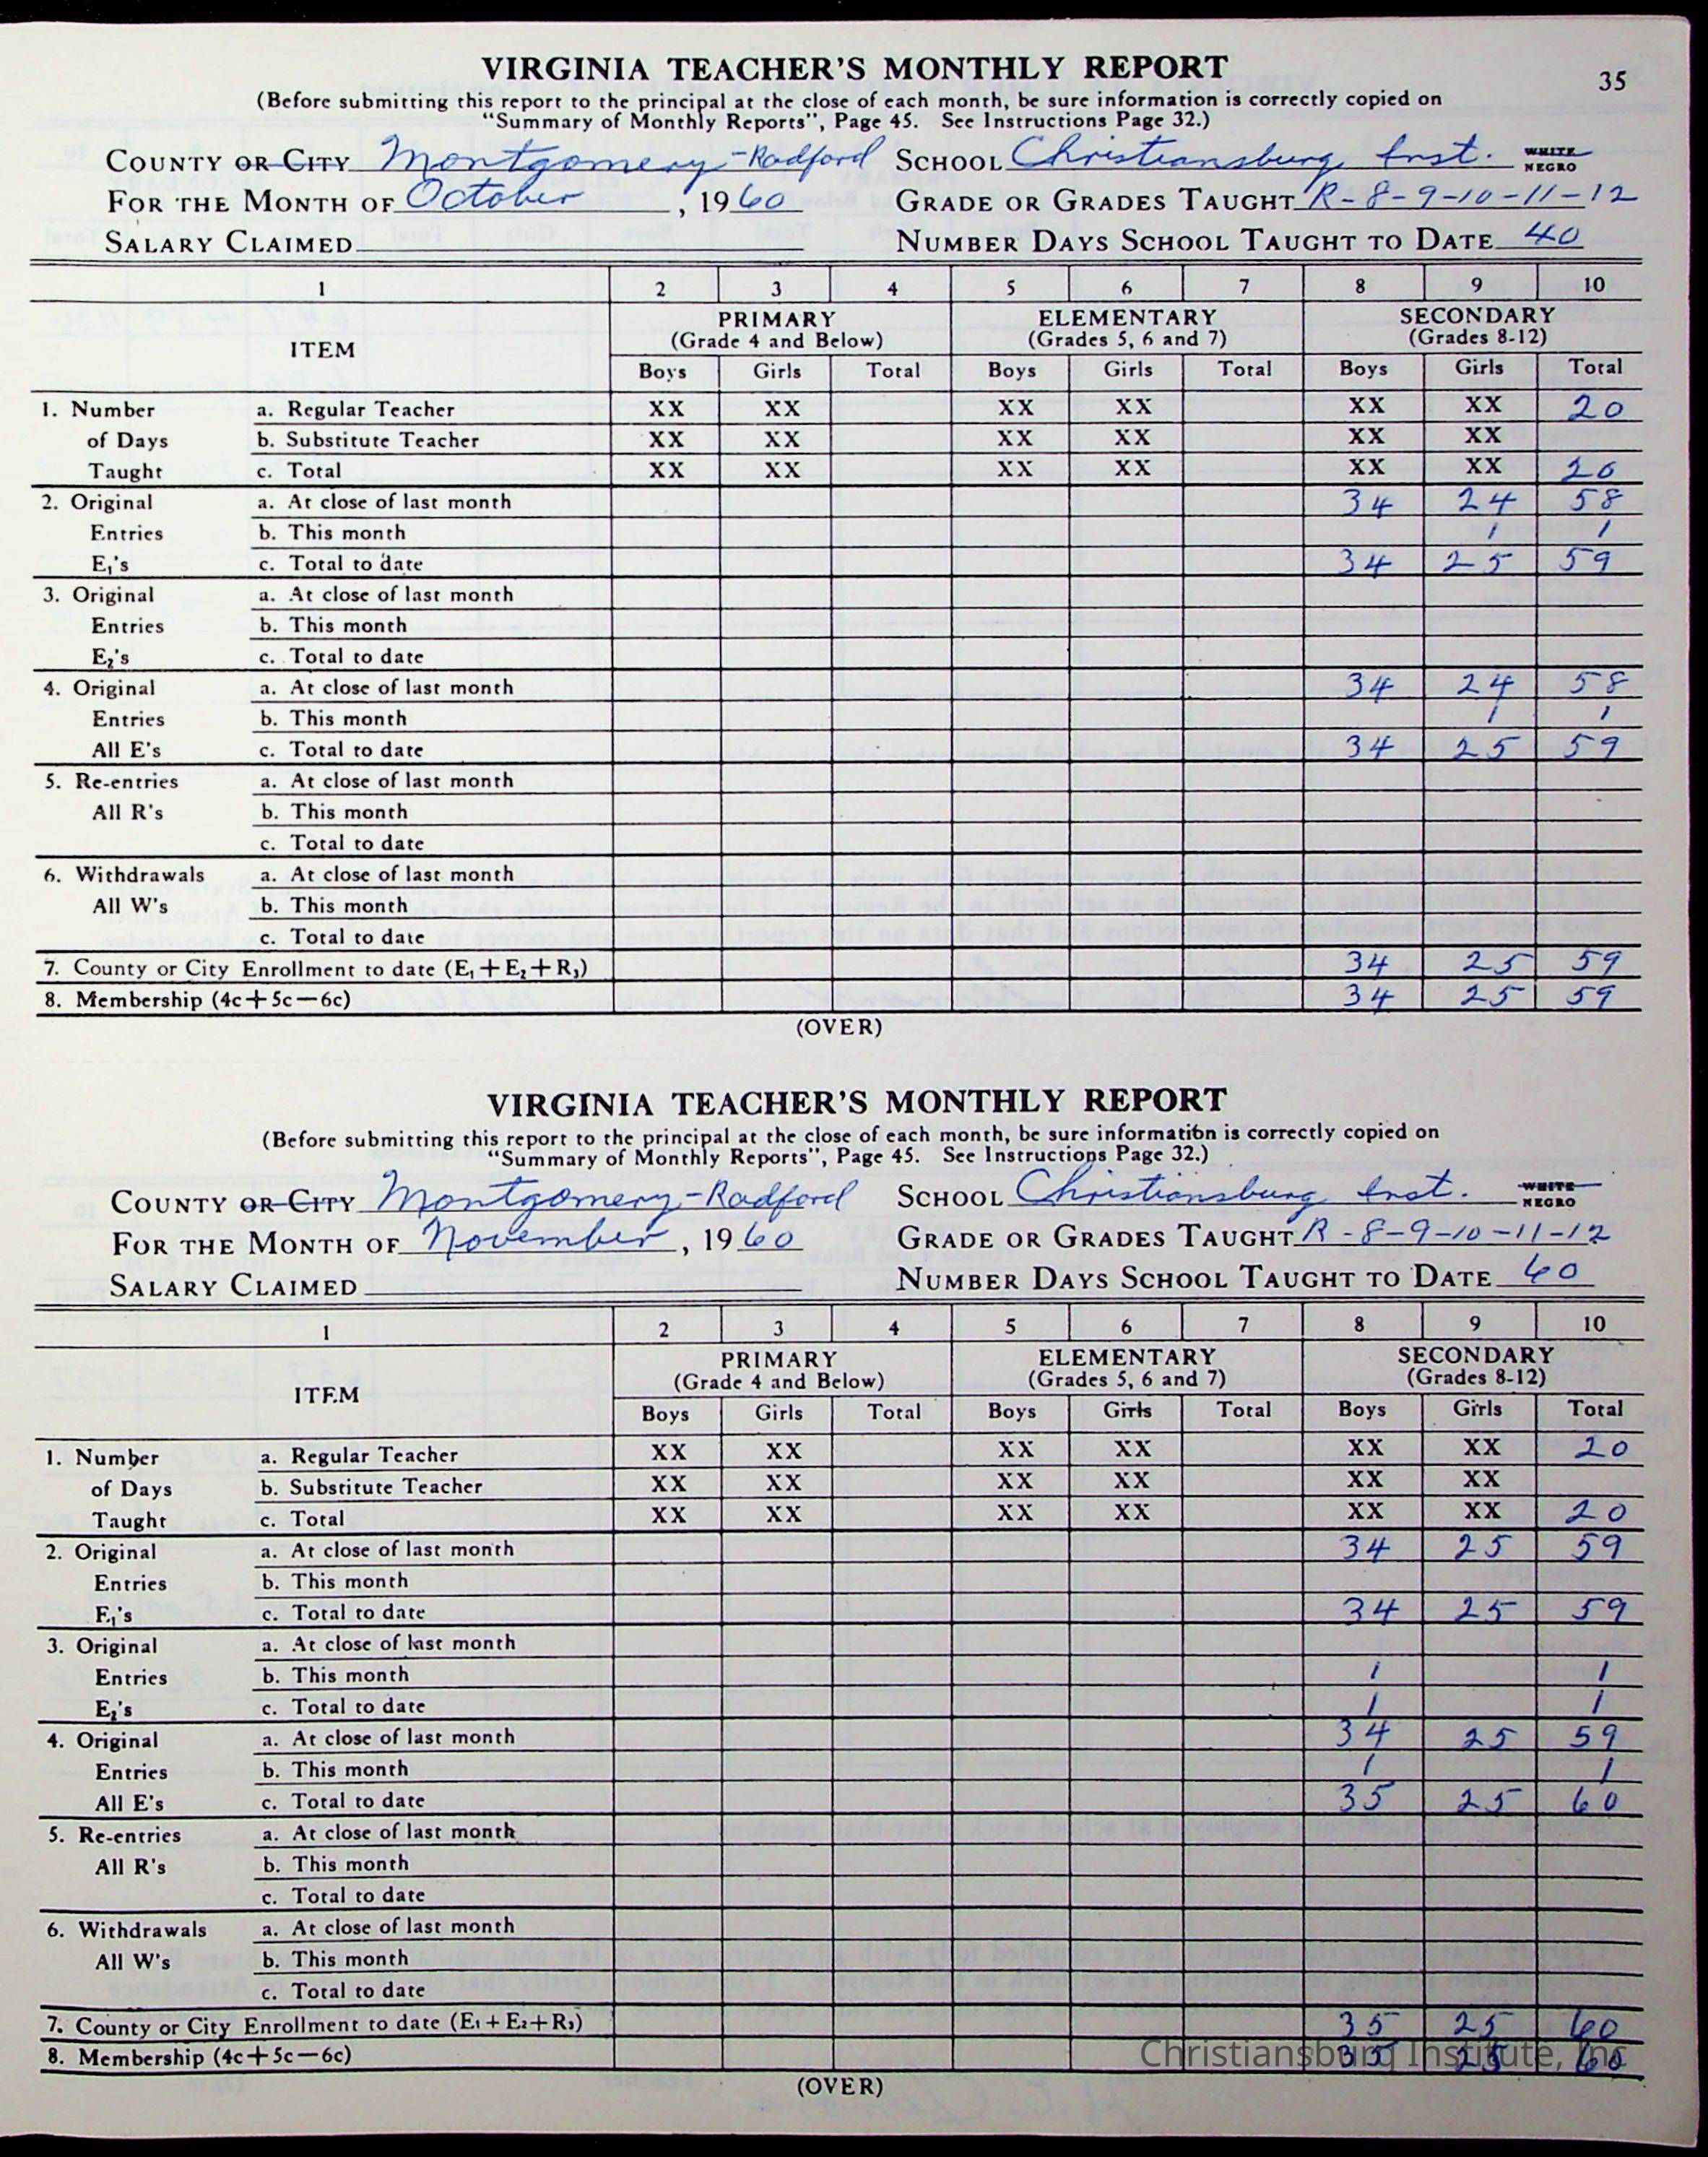 35
VIRGINIA TEACHER'S MONTHLY REPORT
(Before submitting this report to the principal at the close of each month, be sure information is correctly copied on
"Summary of Monthly Reports", Page 45. See Instructions Page 32.)
COUNTY OR CITY Montgomery-Radford SCHOOL Christiansburg Inst. WHITE NEGRO
FOR THE MONTH OF October, 1960 GRADE OR GRADES TAUGHT R-8-9-10-11-12
SALARY CLAIMED NUMBER DAYS SCHOOL TAUGHT TO DATE 40
1 2 3 4 5 6 7 8 9 10
PRIMARY ELEMENTARY SECONDARY
ITEM (Grade 4 and Below) (Grades 5, 6 and 7) (Grades 8-12)
Boys Girls Total Boys Girls Total Boys Girls Total
1. Number a. Regular Teacher XX XX XX XX XX XX 20
of Days b. Substitute Teacher XX XX XX XX XX XX
Taught c. Total XX XX XX XX XX XX 20
2. Original a. At close of last month 34 24 58
Entries b. This month 1 1
E₁'s c. Total to date 34 25 59
3. Original a. At close of last month
Entries b. This month
E₂'s c. Total to date
4. Original a. At close of last month 34 24 58
Entries b. This month 1 1
All E's c. Total to date 34 25 59
5. Re-entries a. At close of last month
All R's b. This month
c. Total to date
6. Withdrawals a. At close of last month
All W's b. This month
c. Total to date
7. County or City Enrollment to date (E₁+E₂+R₃) 34 25 59
8. Membership (4c+5c−6c) 34 25 59
(OVER)
VIRGINIA TEACHER'S MONTHLY REPORT
(Before submitting this report to the principal at the close of each month, be sure information is correctly copied on
"Summary of Monthly Reports", Page 45. See Instructions Page 32.)
COUNTY OR CITY Montgomery-Radford SCHOOL Christiansburg Inst. WHITE NEGRO
FOR THE MONTH OF November, 1960 GRADE OR GRADES TAUGHT R-8-9-10-11-12
SALARY CLAIMED NUMBER DAYS SCHOOL TAUGHT TO DATE 60
1 2 3 4 5 6 7 8 9 10
PRIMARY ELEMENTARY SECONDARY
ITEM (Grade 4 and Below) (Grades 5, 6 and 7) (Grades 8-12)
Boys Girls Total Boys Girls Total Boys Girls Total
1. Number a. Regular Teacher XX XX XX XX XX XX 20
of Days b. Substitute Teacher XX XX XX XX XX XX
Taught c. Total XX XX XX XX XX XX 20
2. Original a. At close of last month 34 25 59
Entries b. This month
E₁'s c. Total to date 34 25 59
3. Original a. At close of last month
Entries b. This month 1 1
E₂'s c. Total to date 1 1
4. Original a. At close of last month 34 25 59
Entries b. This month 1 1
All E's c. Total to date 35 25 60
5. Re-entries a. At close of last month
All R's b. This month
c. Total to date
6. Withdrawals a. At close of last month
All W's b. This month
c. Total to date
7. County or City Enrollment to date (E₁+E₂+R₃) 35 25 60
8. Membership (4c+5c−6c) 35 25 60
Christiansburg Institute, Inc
(OVER)